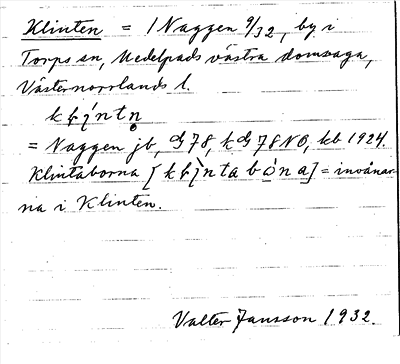 Klinten = 1 Naggen 9/32, by i
Torps sn, Medelpads västra domsaga,
Västernorrlands l.
= Naggen jb, G 78, kG 78 NO, kb 1924.
Klintaborna = invånar-
na i Klinten.
Valter Jansson 1932.